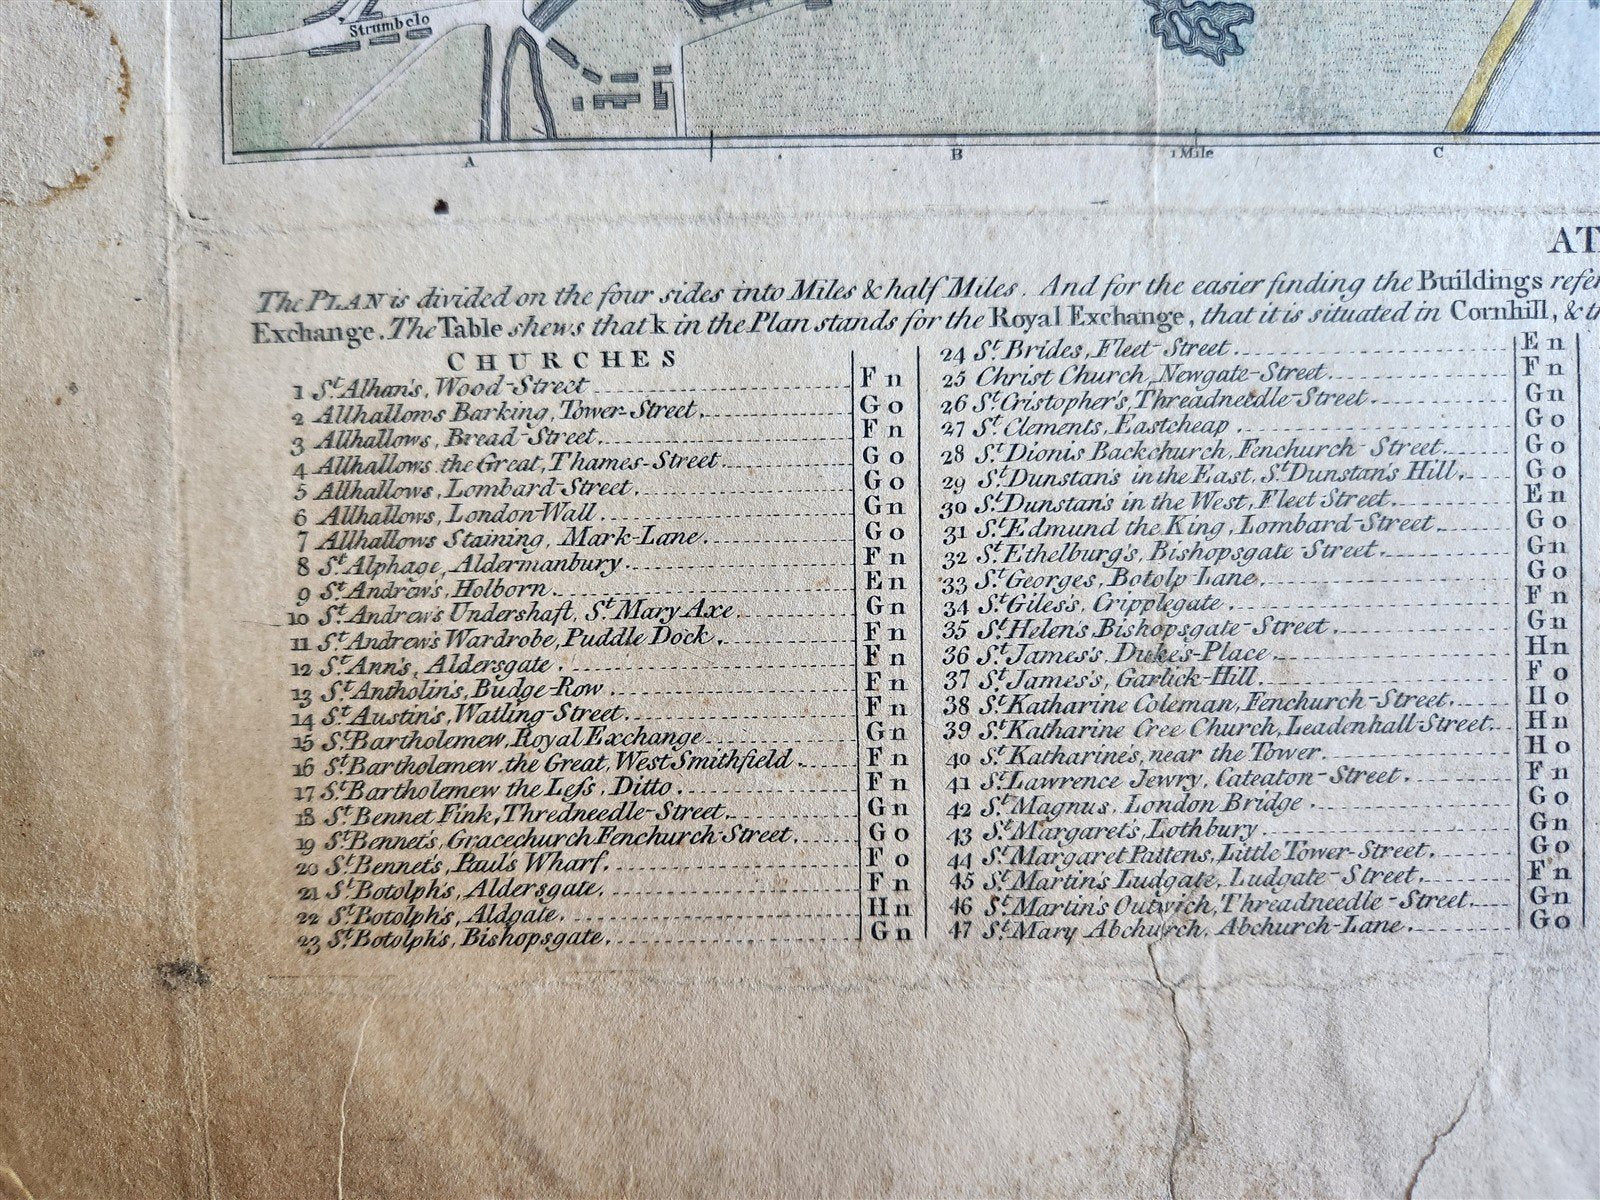 Strumbelo
A
B
1 Mile
C
AT
The PLAN is divided on the four sides into Miles & half Miles. And for the easier finding the Buildings refer
Exchange. The Table shews that k in the Plan stands for the Royal Exchange, that it is situated in Cornhill, & t
CHURCHES
1 St. Alban's, Wood-Street F n
2 Allhallows Barking, Tower-Street. G o
3 Allhallows, Bread-Street. F n
4 Allhallows the Great, Thames-Street G o
5 Allhallows, Lombard-Street. G o
6 Allhallows, London-Wall. G n
7 Allhallows Staining, Mark-Lane. G o
8 St. Alphage, Aldermanbury. F n
9 St. Andrew's, Holborn. E n
10 St. Andrew's Undershaft, St. Mary Axe G n
11 St. Andrew's Wardrobe, Puddle Dock. F n
12 St. Ann's, Aldersgate. F n
13 St. Antholin's, Budge-Row F n
14 St. Austin's, Watling-Street. F n
15 St. Bartholemew, Royal Exchange G n
16 St. Bartholemew the Great, West Smithfield. F n
17 St. Bartholemew the Less, Ditto. F n
18 St. Bennet Fink, Thredneedle-Street. G n
19 St. Bennet's, Gracechurch Fenchurch-Street. G o
20 St. Bennet's, Paul's Wharf. F o
21 St. Botolph's, Aldersgate. F n
22 St. Botolph's, Aldgate. H n
23 St. Botolph's, Bishopsgate. G n
24 St. Brides, Fleet-Street E n
25 Christ Church, Newgate-Street. F n
26 St. Cristopher's, Threadneedle-Street. G n
27 St. Clements, Eastcheap G o
28 St. Dionis Backchurch, Fenchurch-Street. G o
29 St. Dunstan's in the East, St. Dunstan's Hill. G o
30 St. Dunstan's in the West, Fleet Street. E n
31 St. Edmund the King, Lombard-Street G o
32 St. Ethelburg's, Bishopsgate-Street. G n
33 St. Georges, Botolp Lane. G o
34 St. Giles's, Cripplegate. F n
35 St. Helen's Bishopsgate-Street. G n
36 St. James's, Duke's-Place. H n
37 St. James's, Garlick-Hill. F o
38 St. Katharine Coleman, Fenchurch-Street. H o
39 St. Katharine Cree Church, Leadenhall-Street. H n
40 St. Katharine's, near the Tower. H o
41 St. Lawrence Jewry, Cateaton-Street. F n
42 St. Magnus, London Bridge G o
43 St. Margaret's, Lothbury G n
44 St. Margaret Pattens, Little Tower-Street. G o
45 St. Martin's Ludgate, Ludgate-Street. F n
46 St. Martin's Outwich, Threadneedle-Street. G n
47 St. Mary Abchurch, Abchurch-Lane. G o